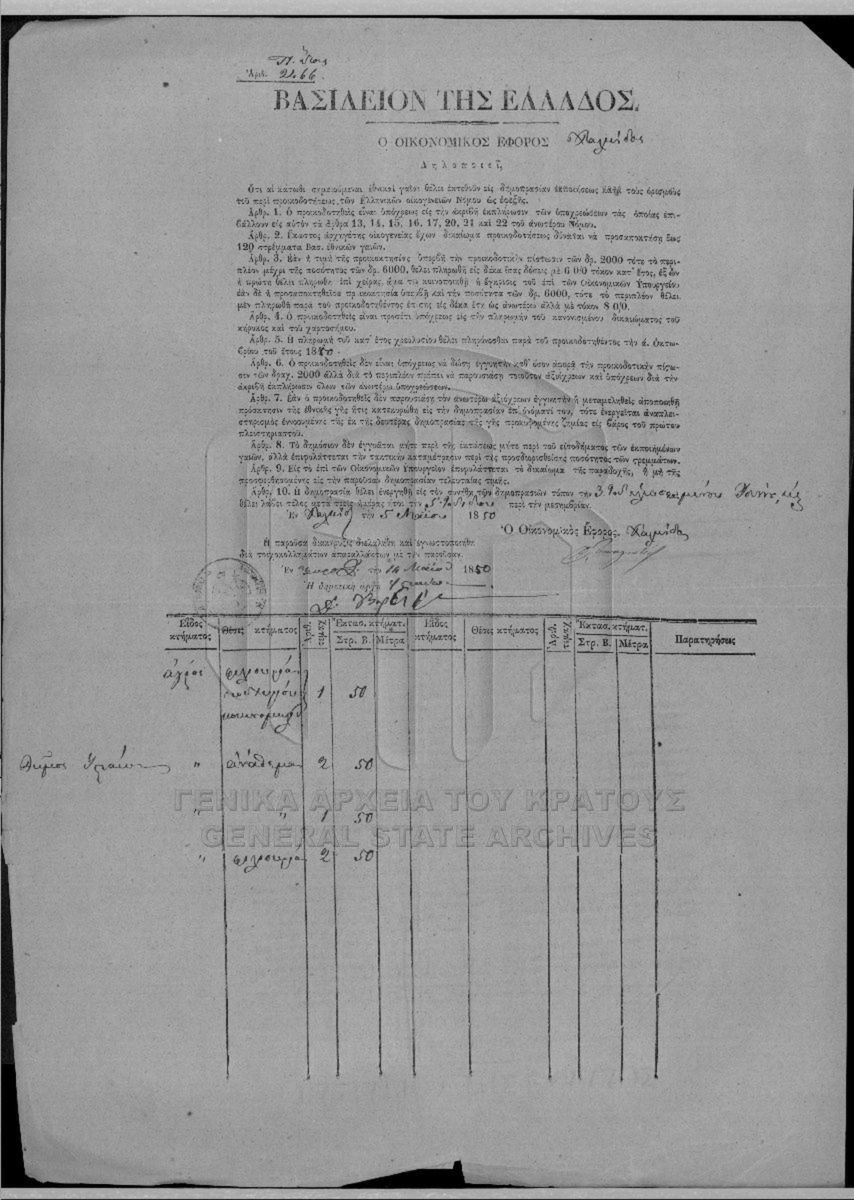 Ἀριθ. 2466
ΒΑΣΙΛΕΙΟΝ ΤΗΣ ΕΛΛΑΔΟΣ.
Ο ΟΙΚΟΝΟΜΙΚΟΣ ΕΦΟΡΟΣ Χαλκίδος
Δηλοποιεῖ,
Ότι αἱ κάτωθι σημειούμεναι ἐθνικαὶ γαῖαι θέλει ἐκτεθοῦν εἰς δημοπρασίαν ἐκποιήσεως κατὰ τοὺς ὁρισμοὺς
τοῦ περὶ προικοδοτήσεως τῶν Ἑλληνικῶν οἰκογενειῶν Νόμου ὡς ἐφεξῆς.
Ἄρθρ. 1. Ὁ προικοδοτηθεὶς εἶναι ὑπόχρεως εἰς τὴν ἀκριβῆ ἐκπλήρωσιν τῶν ὑποχρεώσεων τὰς ὁποίας ἐπι-
βάλλουν εἰς αὐτὸν τὰ ἄρθρα 13, 14, 15, 16, 17, 20, 21 καὶ 22 τοῦ ἀνωτέρω Νόμου.
Ἄρθρ. 2. Ἕκαστος ἀρχηγέτης οἰκογενείας ἔχων δικαίωμα προικοδοτήσεως δύναται νὰ προσαποκτήσῃ ἕως
120 στρέμματα Βασ. ἐθνικῶν γαιῶν.
Ἄρθρ. 3. Ἐὰν ἡ τιμὴ τῆς προικοκτησίας ὑπερβῇ τὴν προικοδοτικὴν πίστωσιν τῶν δρ. 2000 τότε τὸ περι-
πλέον μέχρι τῆς ποσότητος τῶν δρ. 6000, θέλει πληρωθῆ εἰς δέκα ἴσας δόσεις μὲ 6 0/0 τόκον κατ' ἔτος, ἐξ ὧν
ἡ πρώτη θέλει πληρωθῆ ἐπὶ χεῖρας, ἅμα τῷ κοινοποιηθῇ ἡ ἔγκρισις τοῦ ἐπὶ τῶν Οἰκονομικῶν Ὑπουργείου
ἐὰν δὲ ἡ προσαποκτηθεῖσα προικοκτησία ὑπερβῇ καὶ τὴν ποσότητα τῶν δρ. 6000, τότε τὸ περιπλέον θέλει
μὲν πληρωθῆ παρὰ τοῦ προικοδοτηθέντος ἐπίσης εἰς δέκα ἔτη ὡς ἀνωτέρω ἀλλὰ μὲ τόκον 8 0/0.
Ἄρθρ. 4. Ὁ προικοδοτηθεὶς εἶναι προσέτι ὑπόχρεως εἰς τὴν πληρωμὴν τοῦ κανονισμένου δικαιώματος τοῦ
κήρυκος καὶ τοῦ χαρτοσήμου.
Ἄρθρ. 5. Ἡ πληρωμὴ τοῦ κατ' ἔτος χρεολυσίου θέλει πληρόνεσθαι παρὰ τοῦ προικοδοτηθέντος τὴν ά. Ὀκτω-
βρίου τοῦ ἔτους 1850.
Ἄρθρ. 6. Ὁ προικοδοτηθεὶς δὲν εἶναι ὑπόχρεως νὰ δώσῃ ἐγγυητὴν καθ' ὅσον ἀφορᾷ τὴν προικοδοτικὴν πίστω-
σιν τῶν δραχ. 2000 ἀλλὰ διὰ τὸ περιπλέον πρέπει νὰ παρουσιάσῃ τοιοῦτον ἀξιόχρεων καὶ ὑπόχρεων διὰ τὴν
ἀκριβῆ ἐκπλήρωσιν ὅλων τῶν ἀνωτέρω ὑποχρεώσεων.
Ἄρθρ. 7. Ἐὰν ὁ προικοδοτηθεὶς δὲν παρουσιάσῃ τὸν ἀνωτέρω ἀξιόχρεων ἐγγυητὴν ἢ μεταμεληθεὶς ἀποποιηθῇ
πρόσκτησιν τῆς ἐθνικῆς γῆς ἥτις κατεκυρώθη εἰς τὴν δημοπρασίαν ἐπ' ὀνόματί του, τότε ἐνεργεῖται ἀναπλει-
στηριασμὸς ἐννοουμένης τῆς ἐκ τῆς δευτέρας δημοπρασίας τῆς γῆς προκυψομένης ζημίας εἰς βάρος τοῦ πρώτου
πλειστηριαστοῦ.
Ἄρθρ. 8. Τὸ δημόσιον δὲν ἐγγυᾶται μήτε περὶ τῆς ἐκτάσεως μήτε περὶ τοῦ εἰσοδήματος τῶν ἐκποιημένων
γαιῶν, ἀλλὰ ἐπιφυλάττεται τὴν τακτικὴν καταμέτρησιν περὶ τῆς προσδιορισθείσης ποσότητος τῶν στρεμμάτων.
Ἄρθρ. 9. Εἰς τὸ ἐπὶ τῶν Οἰκονομικῶν Ὑπουργεῖον ἐπιφυλάττεται τὸ δικαίωμα τῆς παραδοχῆς, ἢ μὴ τῆς
προσφερθησομένης εἰς τὴν παροῦσαν δημοπρασίαν τελευταίας τιμῆς.
Ἄρθρ. 10. Ἡ δημοπρασία θέλει ἐνεργηθῆ εἰς τὸν συνήθη τῶν δημοπρασιῶν τόπον τὴν
θέλει λάβει τέλος μετὰ τρεῖς ἡμέρας ἤτοι τὴν περὶ τὴν μεσημβρίαν.
Ἐν Χαλκίδι τὴν 5 Μαΐου 1850
Ὁ Οἰκονομικὸς Ἔφορος Χαλκίδος
Ἡ παροῦσα διακήρυξις διελαλήθη καὶ ἐγνωστοποιήθη
διὰ τοιχοκολλημάτων ἀπαραλλάκτων μὲ τὴν παροῦσαν.
Ἐν τὴν 14 Μαΐου 1850
Ἡ δημοτικὴ ἀρχὴ
Εἶδος κτήματος Θέσις κτήματος Ἀριθ. τεμαχ Ἔκτασ. κτήματ. Εἶδος κτήματος Θέσις κτήματος Ἀριθ. τεμαχ Ἔκτασ. κτήματ. Παρατηρήσεις
Στρ. Β. Μέτρα Στρ. Β. Μέτρα
ἀγρός 1 50
Δῆμος " ἀνάθεμα 2 50
" " 1 50
" 2 50
ΓΕΝΙΚΑ ΑΡΧΕΙΑ ΤΟΥ ΚΡΑΤΟΥΣ
GENERAL STATE ARCHIVES